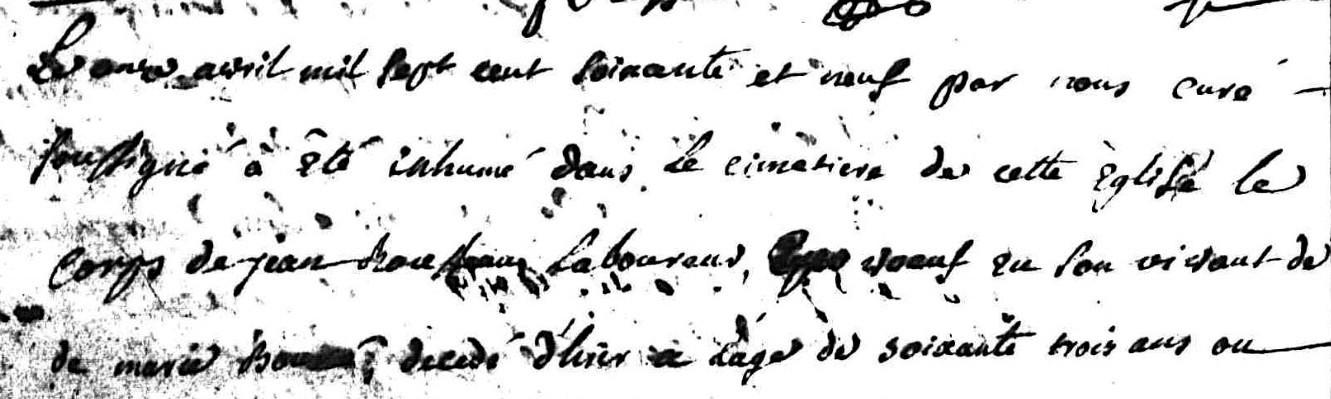 Le onze avril mil sept cent soixante et neuf par nous curé
soussigné a été inhumé dans le cimetiere de cette Eglise le
corps de jean laboureur, voeuf en son vivant de
de marie decedé d'hier a l'age de soixante trois ans ou